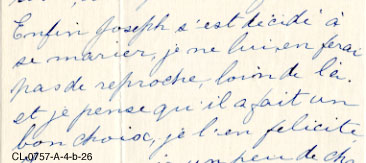 Enfin Joseph s'est décidé à
se marier, je ne lui en ferai
pas de reproche, loin de là.
et je pense qu'il a fait un
bon choix, je l'en félicite
CL-0757-A-4-b-26
un peu de ch